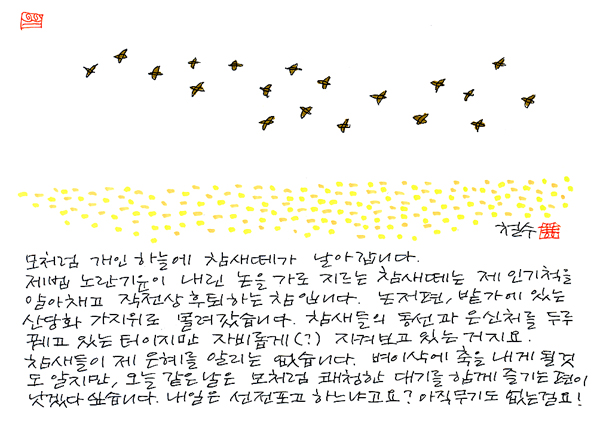 철수
모처럼 개인 하늘에 참새떼가 날아갑니다.
제법 노란기운이 내린 논을 가로 지르는 참새떼는 제 인기척을
알아채고 작전상 후퇴하는 참입니다. 논저편, 밭가에 있는
산당화 가지위로 몰려갔습니다. 참새들의 동선과 은신처를 두루
꿰고 있는 터이지만 자비롭게(?) 지켜보고 있는 거지요.
참새들이 제 은혜를 알리는 없습니다. 벼이삭에 축을 내게 될것
도 알지만, 오늘 같은날은 모처럼 쾌청한 대기를 함께 즐기는 편이
낫겠다 싶습니다. 내일은 선전포고 하느냐고요? 아직무기도 없는걸요!